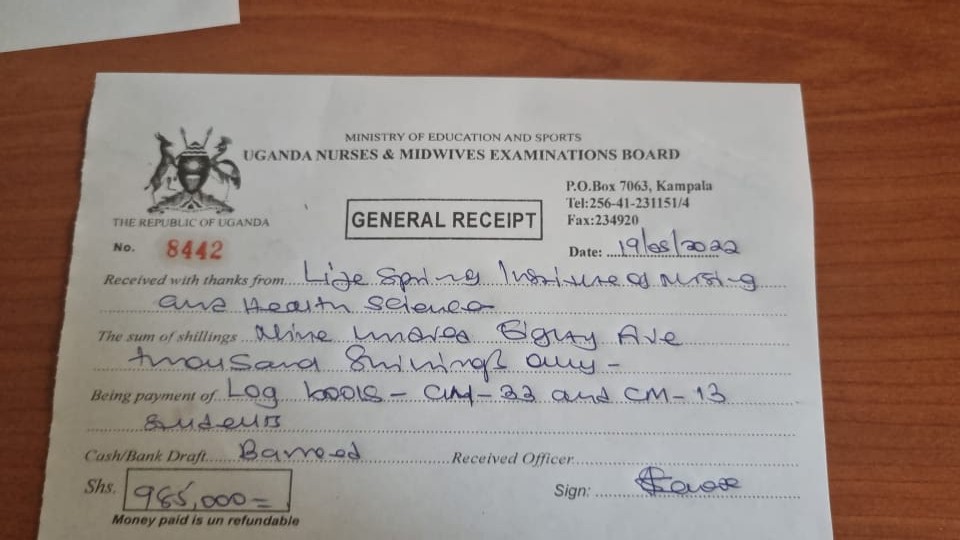 MINISTRY OF EDUCATION AND SPORTS
UGANDA NURSES & MIDWIVES EXAMINATIONS BOARD
P.O.Box 7063, Kampala
Tel:256-41-231151/4
Fax:234920
THE REPUBLIC OF UGANDA
GENERAL RECEIPT
No. 8442
Date: 19/05/2022
Received with thanks from Life Spring Institute of Nursing
and Health Science
The sum of shillings Nine Hundred Eighty Five
thousand Shillings only -
Being payment of Log books - CN - 33 and CM - 13
students
Cash/Bank Draft Banked Received Officer
Shs. 985,000=
Sign:
Money paid is un refundable